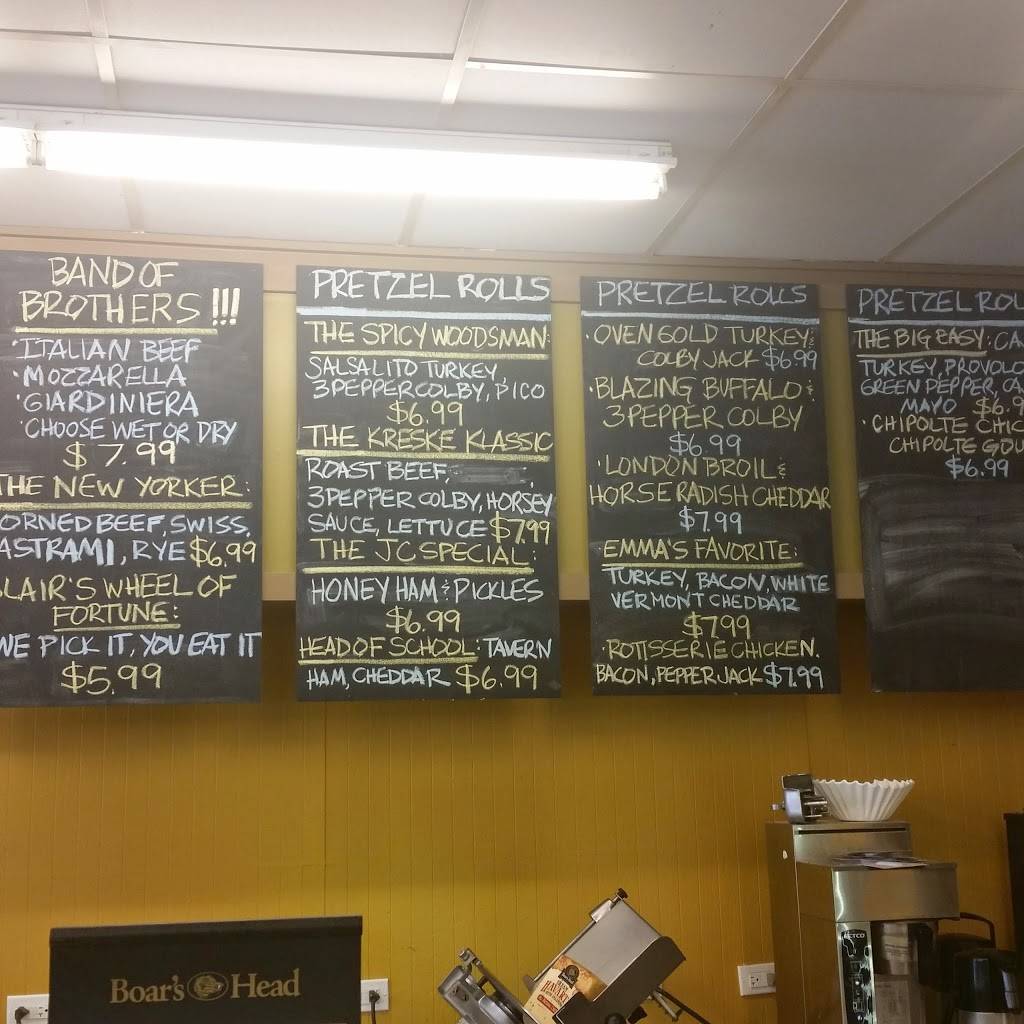 BAND OF
BROTHERS!!!
·ITALIAN BEEF
·MOZZARELLA
·GIARDINIERA
·CHOOSE WET OR DRY
$7.99
THE NEW YORKER:
ORNED BEEF, SWISS,
ASTRAMI, RYE $6.99
LAIR'S WHEEL OF
FORTUNE:
WE PICK IT, YOU EAT IT
$5.99
PRETZEL ROLLS
THE SPICY WOODSMAN:
SALSALITO TURKEY,
3 PEPPER COLBY, PICO
$6.99
THE KRESKE KLASSIC
ROAST BEEF,
3 PEPPER COLBY, HORSEY
SAUCE, LETTUCE $7.99
THE JC SPECIAL:
HONEY HAM & PICKLES
$6.99
HEAD OF SCHOOL: TAVERN
HAM, CHEDDAR $6.99
PRETZEL ROLLS
·OVEN GOLD TURKEY &
COLBY JACK $6.99
·BLAZING BUFFALO &
3 PEPPER COLBY
$6.99
·LONDON BROIL &
HORSERADISH CHEDDAR
$7.99
EMMA'S FAVORITE:
TURKEY, BACON, WHITE
VERMONT CHEDDAR
$7.99
·ROTISSERIE CHICKEN,
BACON, PEPPER JACK $7.99
PRETZEL ROL
THE BIG EASY: CA
TURKEY, PROVOLO
GREEN PEPPER,
MAYO $6.9
·CHIPOLTE CHIC
CHIPOLTE GOU
$6.99
Boar's Head